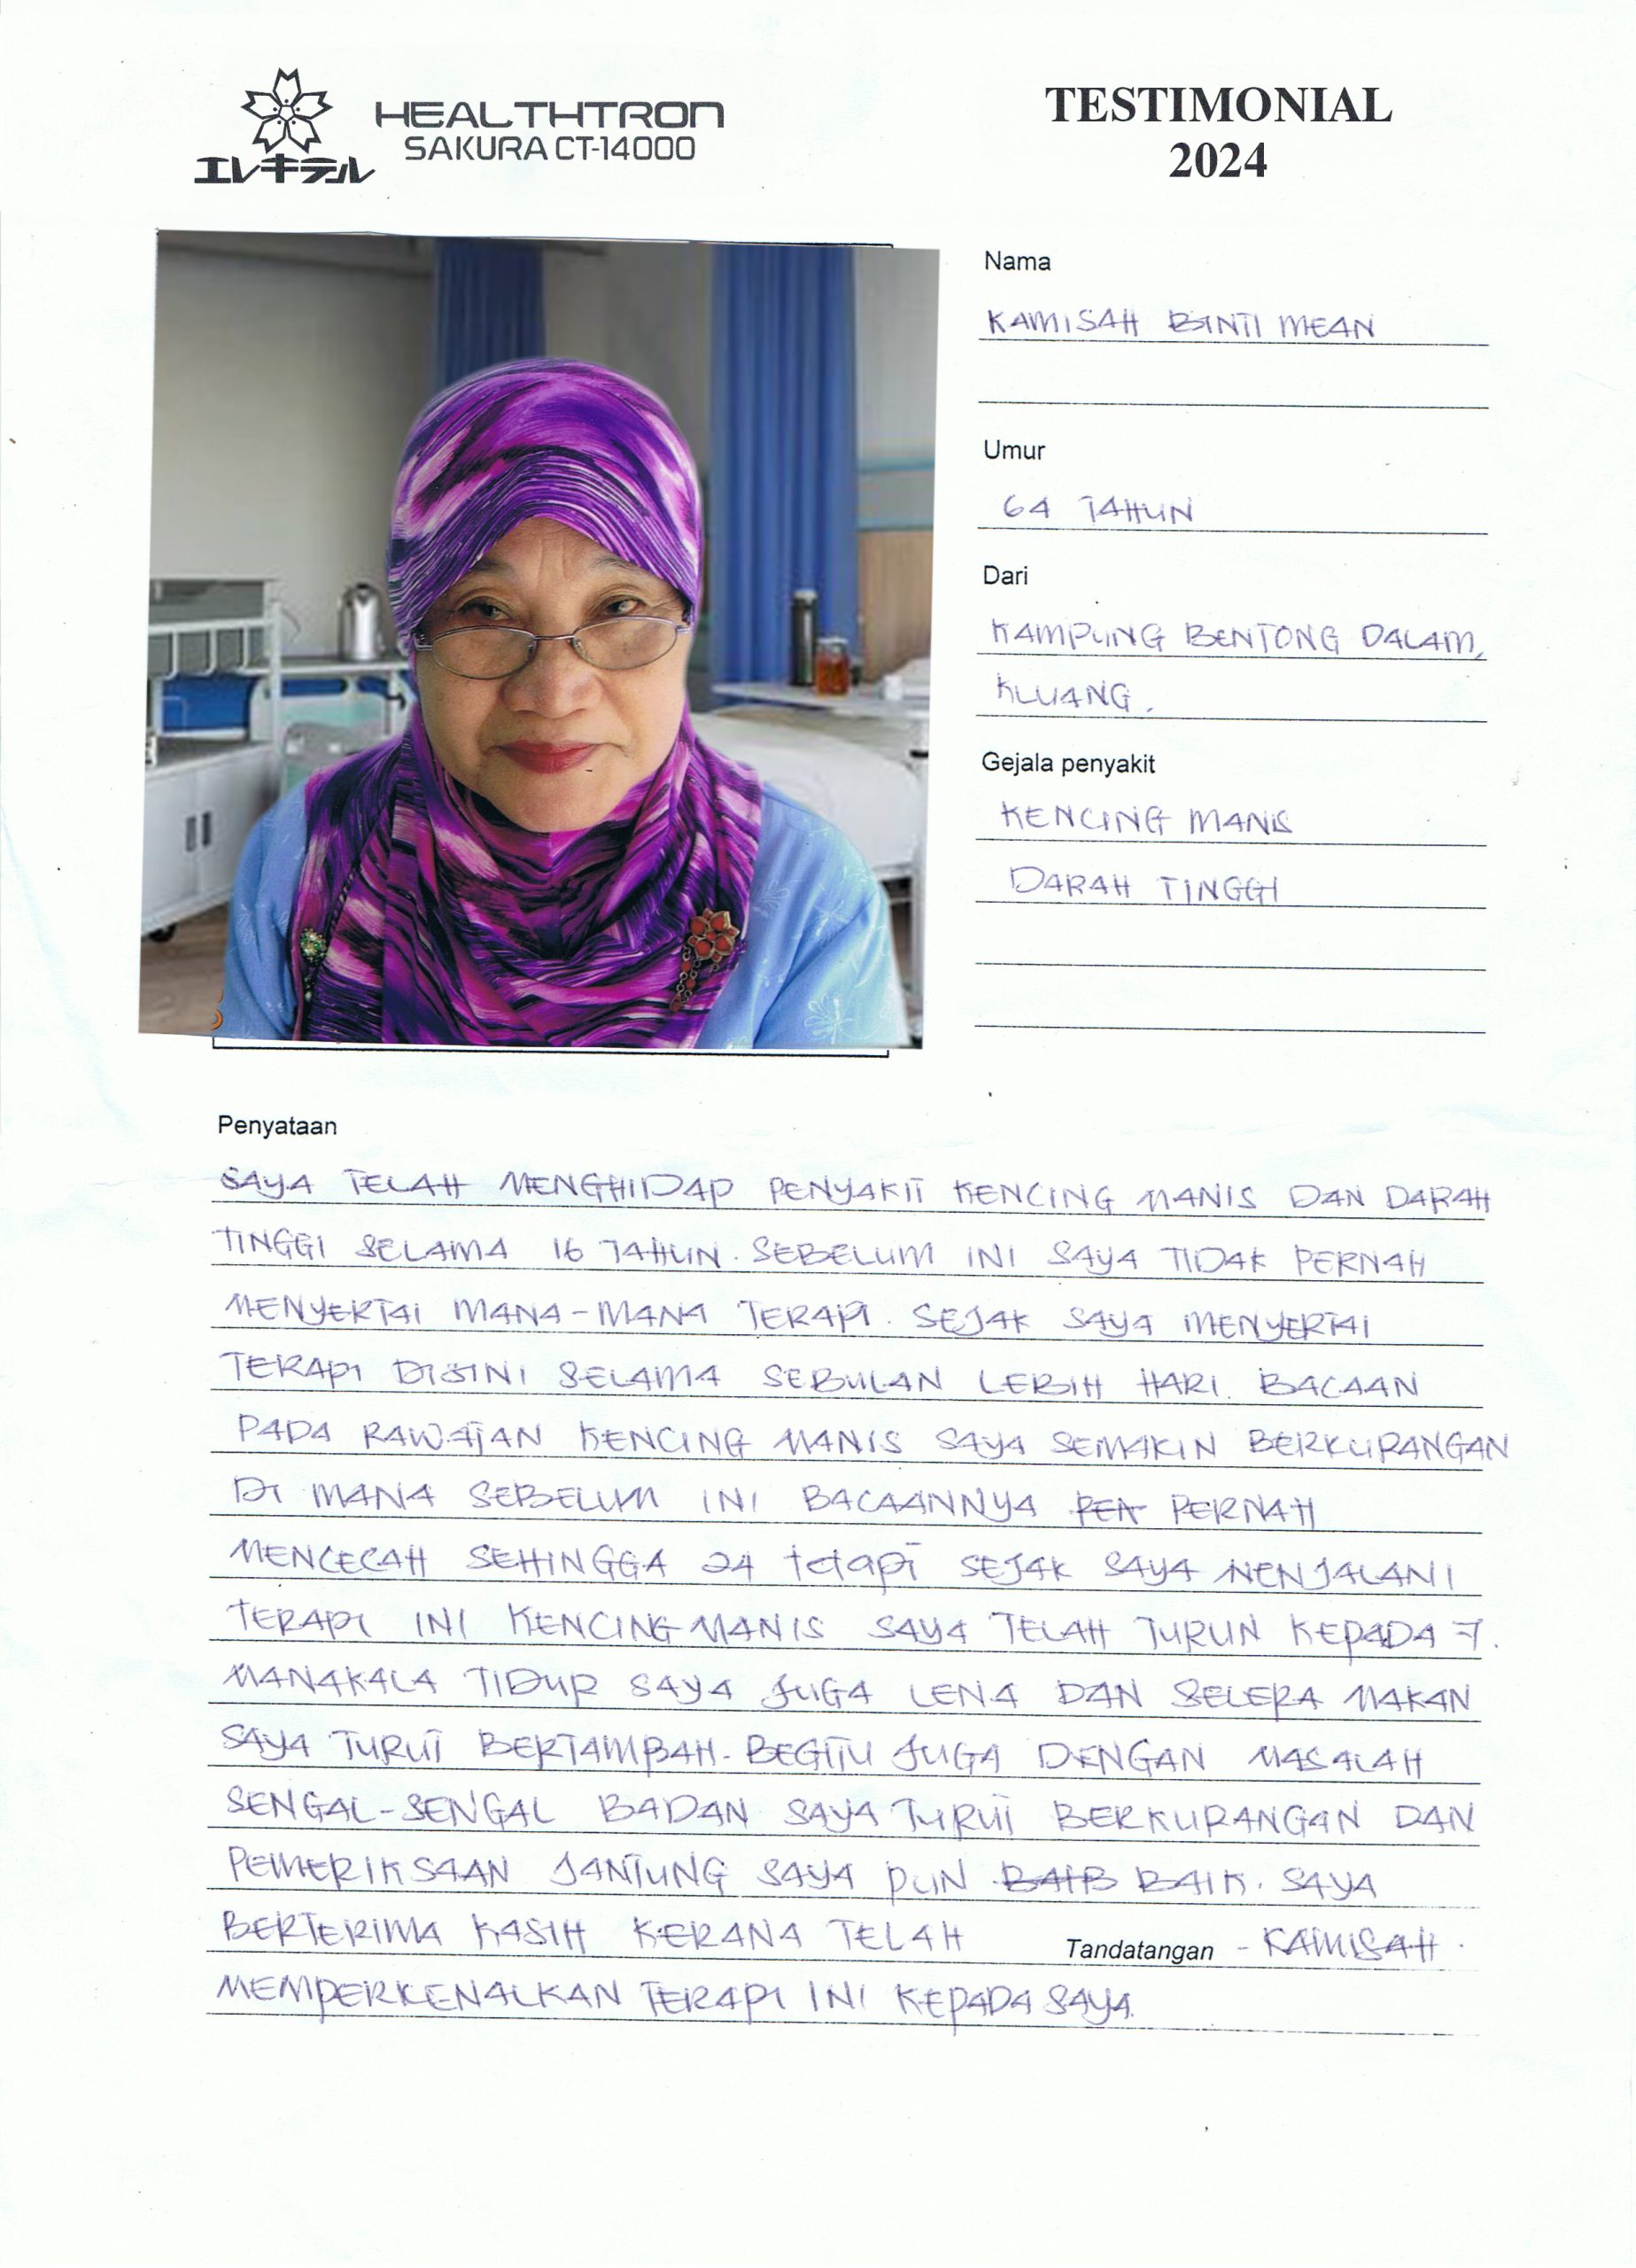 HEALTHTRON
SAKURA CT-14000
エレキテル
TESTIMONIAL
2024
Nama
KAMISAH BINTI MEAN
Umur
64 TAHUN
Dari
KAMPUNG BENTONG DALAM,
KLUANG.
Gejala penyakit
KENCING MANIS
DARAH TINGGI
Penyataan
SAYA TELAH MENGHIDAP PENYAKIT KENCING MANIS DAN DARAH
TINGGI SELAMA 16 TAHUN. SEBELUM INI SAYA TIDAK PERNAH
MENYERTAI MANA-MANA TERAPI. SEJAK SAYA MENYERTAI
TERAPI DISINI SELAMA SEBULAN LEBIH HARI. BACAAN
PADA RAWATAN KENCING MANIS SAYA SEMAKIN BERKURANGAN
DI MANA SEBELUM INI BACAANNYA PER PERNAH
MENCECAH SEHINGGA 24 tetapi SEJAK SAYA MENJALANI
TERAPI INI KENCING MANIS SAYA TELAH TURUN KEPADA 7.
MANAKALA TIDUR SAYA JUGA LENA DAN SELERA MAKAN
SAYA TURUT BERTAMBAH. BEGITU JUGA DENGAN MASALAH
SENGAL-SENGAL BADAN SAYA TURUT BERKURANGAN DAN
PEMERIKSAAN JANTUNG SAYA PUN BAIB BAIK. SAYA
BERTERIMA KASIH KERANA TELAH
MEMPERKENALKAN TERAPI INI KEPADA SAYA.
Tandatangan - KAMISAH.